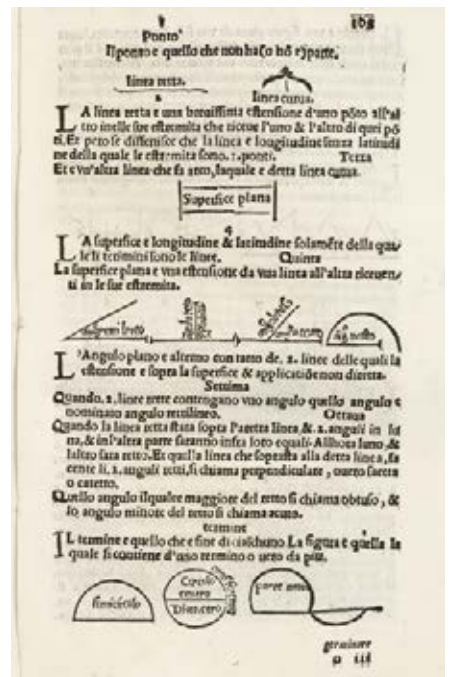 103
Ponto
Il ponto e quello che non ha
linea retta.
linea curua.
LA linea retta e una breuissima estensione d'uno põto all'al
tro inelle sue estremita che riceue l'uno & l'altro di quei põ
ti. Et pero se diffenisce che la linea e longitudine senza latitudi
ne della quale le estremita sono .2. ponti. Terza
Et e vn'altra linea che fa arco, laquale e detta linea curua.
Superfice plana
4
LA superfice e longitudine & latitudine solamẽte della qua
le li termini sono le linee. Quinta
La superfice plana e vna estensione da vna linea all'altra riceuen
ti in le sue estremita.
L'Angulo plano e alterno con tatto de .2. linee delle quali la
estensione e sopra la superfice & applicatiõe non diretta.
Settima
Quando .2. linee rette contengano vno angulo quello angulo e
nominato angulo rettilineo. Ottaua
Quando la linea retta stara sopra l'aretta linea, & .2. anguli in
na, & in l'altra parte saranno infra loro equali. Allhora luno, &
laltro sara retto. Et quella linea che soprasta alla detta linea, fa
cente li .2. anguli retti, si chiama perpendiculare, ouero saetta
o catetto.
Quello angulo ilquale maggiore del retto si chiama obtuso, &
lo angulo minore del retto si chiama acuto.
termine
IL termine e quello che e fine di ciaschuno La figura e quella la
quale si contiene d'uno termino o uero da piu.
semicirculo
Circulo
centro
Diametro